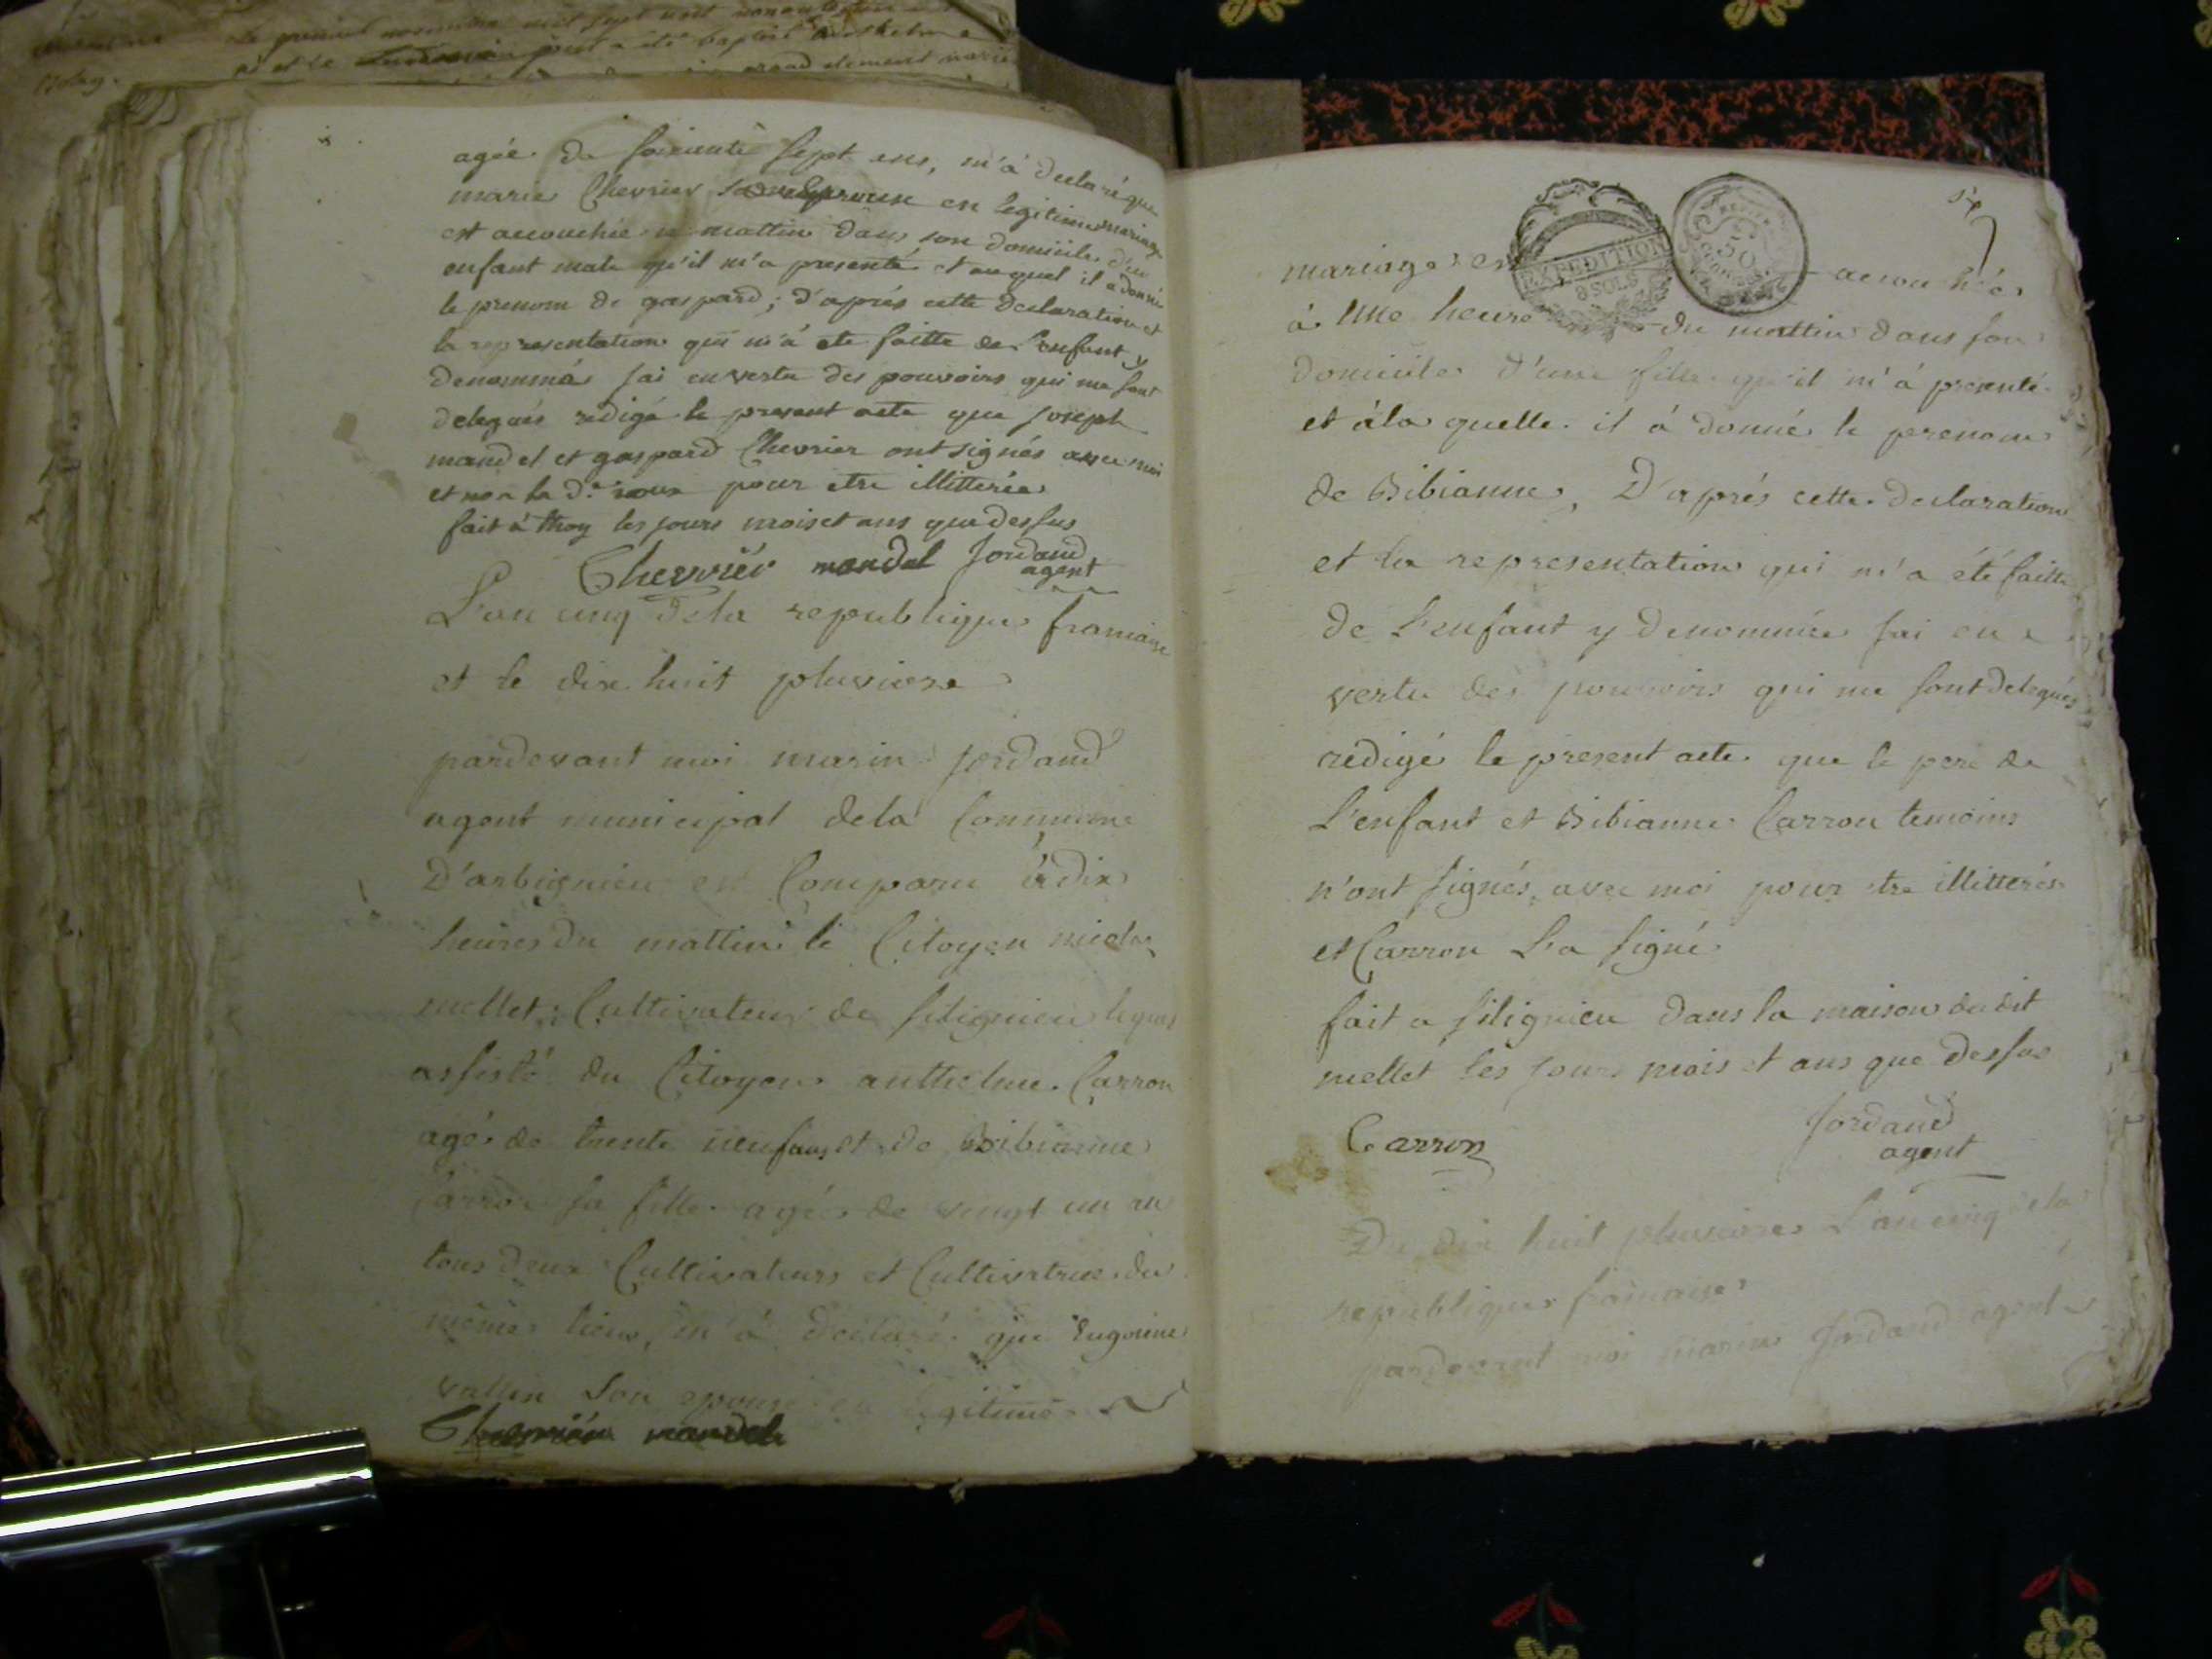 agée de soixante sept ens, m'à declaré que
marie Chevrier son epouse en legitime mariage
est accouchée ce mattin dans son domicile d'un
enfant male qu'il m'a presenté et auquel il a donné
le prenom de gaspard; d'aprés cette declaration et
la representation qui m'à ete faitte de l'enfant y
denommé jai en vertu des pouvoirs qui me sont
delegués redigé le present acte que joseph
mandel et gaspard Chevrier ont signés avec moi
et non la d.e roux pour etre illitterée
fait à thoy les jours mois et ans que dessus
Chevriér mandel Jordand
agent
L'an cinq de la republique francaise
et le dix huit pluviose
pardevant moi marin jordand
agent municipal dela Commune
D'arbignieu est Comparu à dix
heures du mattin le Citoyen nicolas
mellet Cultivateur de silignieu lequel
assisté du Citoyen anthelme Carron
agé de trente neuf ans et de Bibianne
Carron sa fille agée de vingt un an
tous deux Cultivateurs et Cultivatrice du
même lieu, m'à declaré que Eugenine
vallin son epouse en legitime
Chevriér mandel
mariage est accouchée
EXPEDITION
8 SOLS
50
à une heure du mattin dans son
domicile d'une fille qu'il m'à presenté
et àla quelle il à donné le prenom
de Bibianne, D'aprés cette declaration
et la representation qui m'a été faitte
de L'enfant y denommée jai en
vertu des pouvoirs qui me sont delegués
redigé le present acte que le pere de
L'enfant et Bibianne Carron temoins
n'ont signés avec moi pour etre illitterés
et Carron L'a signé
fait a silignieu dans la maison dudit
mellet les jours mois et ans que dessus
Carron Jordand
agent
Du dix huit pluviose L'an cinq dela
republique francaise
pardevant moi marin Jordand agent